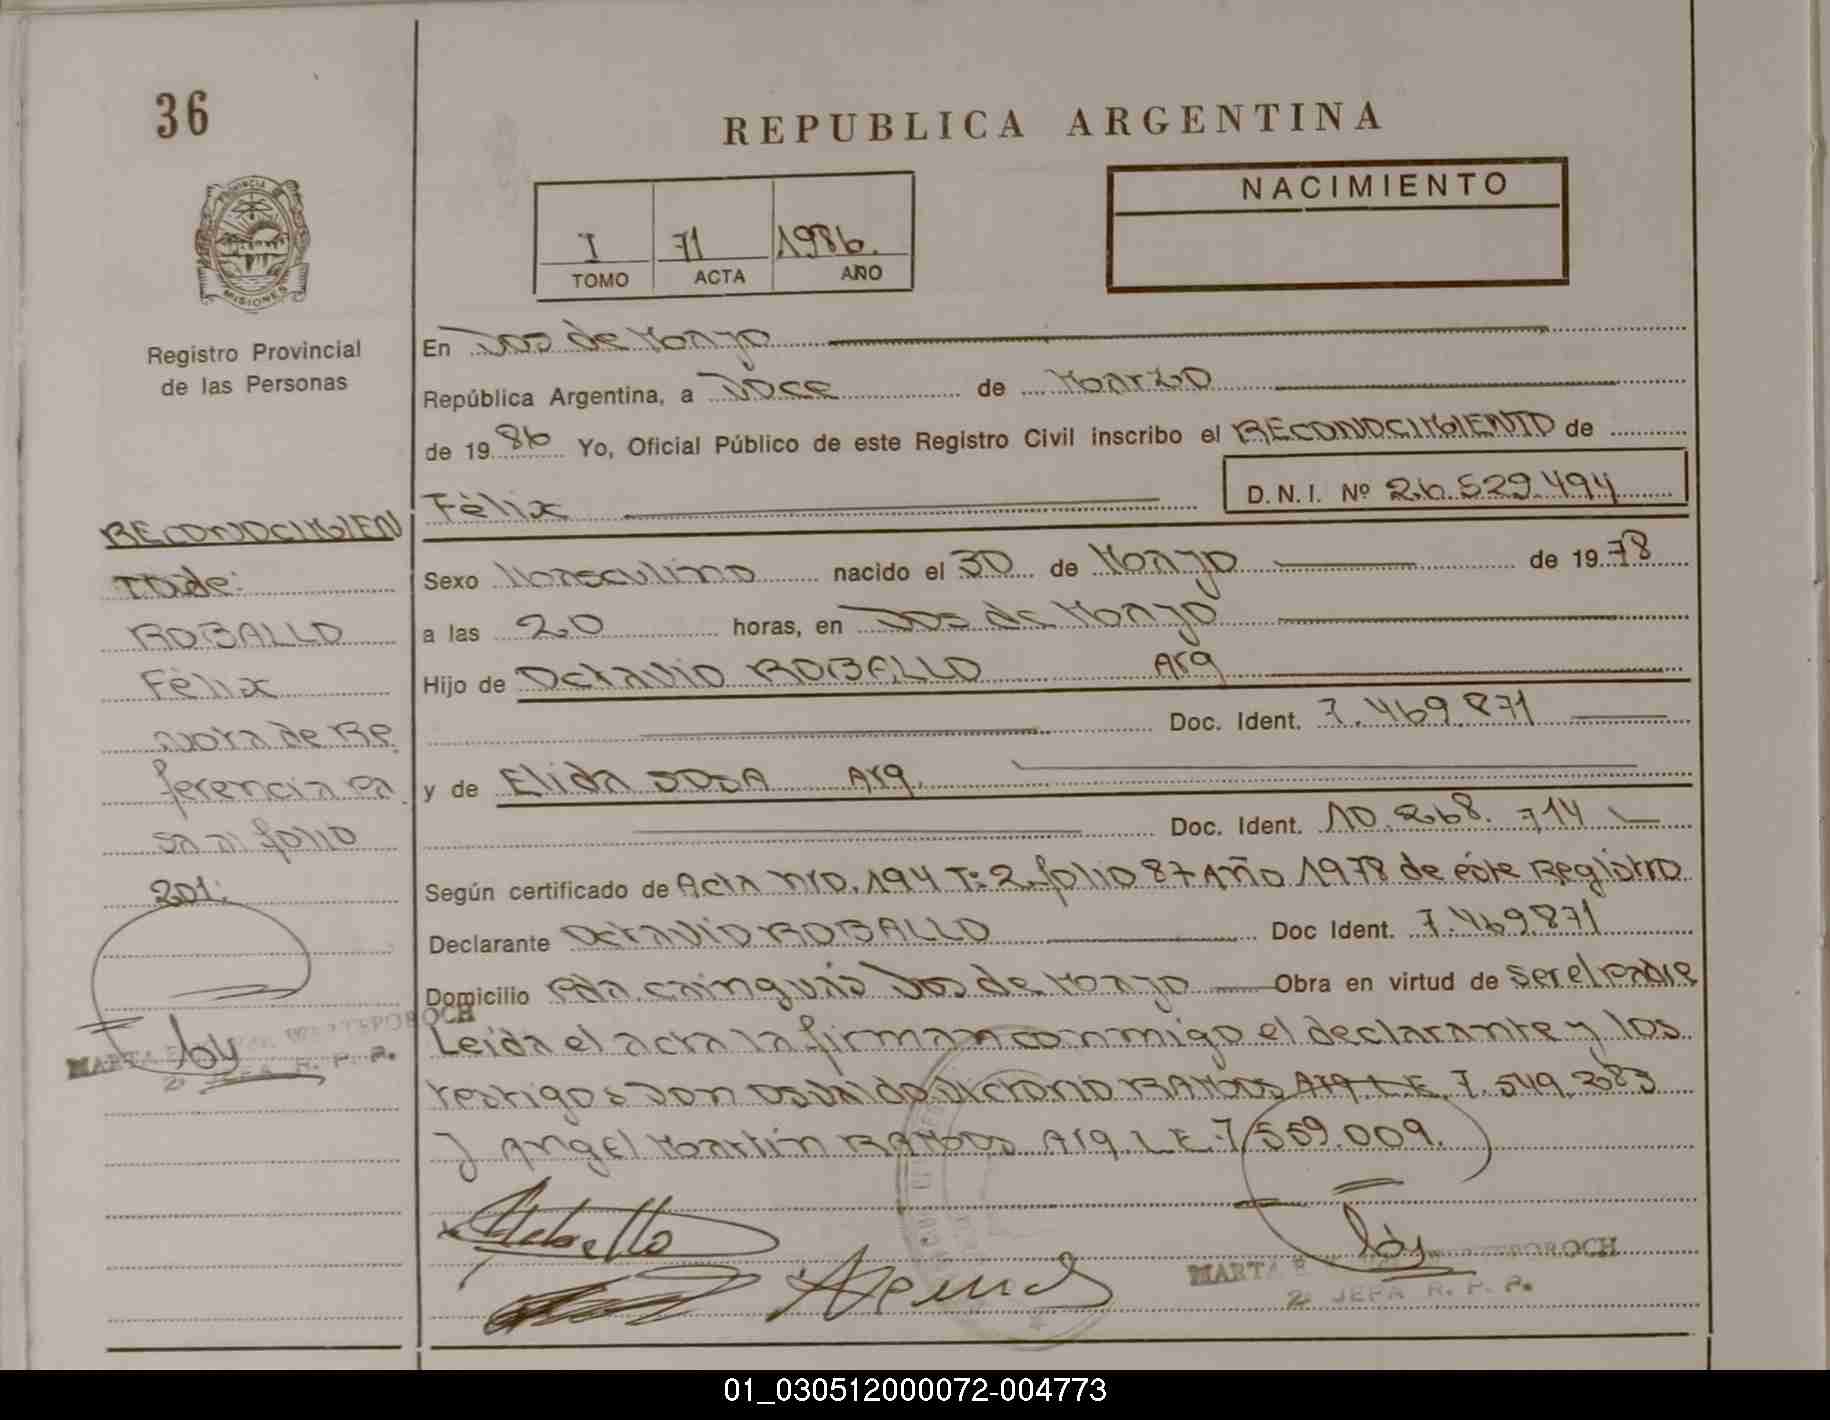 36
REPUBLICA ARGENTINA
PROVINCIA
MISIONES
Registro Provincial
de las Personas
I 71 1986.
TOMO ACTA AÑO
NACIMIENTO
En Dos de Mayo
República Argentina, a Doce de Marzo
de 1986 Yo, Oficial Público de este Registro Civil inscribo el RECONOCIMIENTO de
Fèlix D.N.I. Nº 26.529.494
Sexo Masculino nacido el 30 de Mayo de 1978
a las 20 horas, en Dos de Mayo
Hijo de Octavio ROBALLO Arg
Doc. Ident. 7.469.871
y de Elida SOSA Arg.
Doc. Ident. 10.268.714
Según certificado de Acta nro. 194 T:2 folio 87 Año 1978 de éste Registro
Declarante Octavio ROBALLO Doc Ident. 7.469.871
Domicilio Pda. cainguás Dos de Mayo Obra en virtud de ser el Padre
Leida el acta la firman conmigo el declarante y los
testigos Don Osvaldo Victorio RAMOS Arg. L.E. 7.549.383
y Angel Martín RAMOS Arg. L.E. 7.559.009.
MARTA
2ª JEFA R. P. P.
RECONOCIMIEN
TO de:
ROBALLO
Fèlix
nota de Re
ferencia pa
sa al folio
201.
MARTA
2ª JEFA R. P. P.
01_030512000072-004773